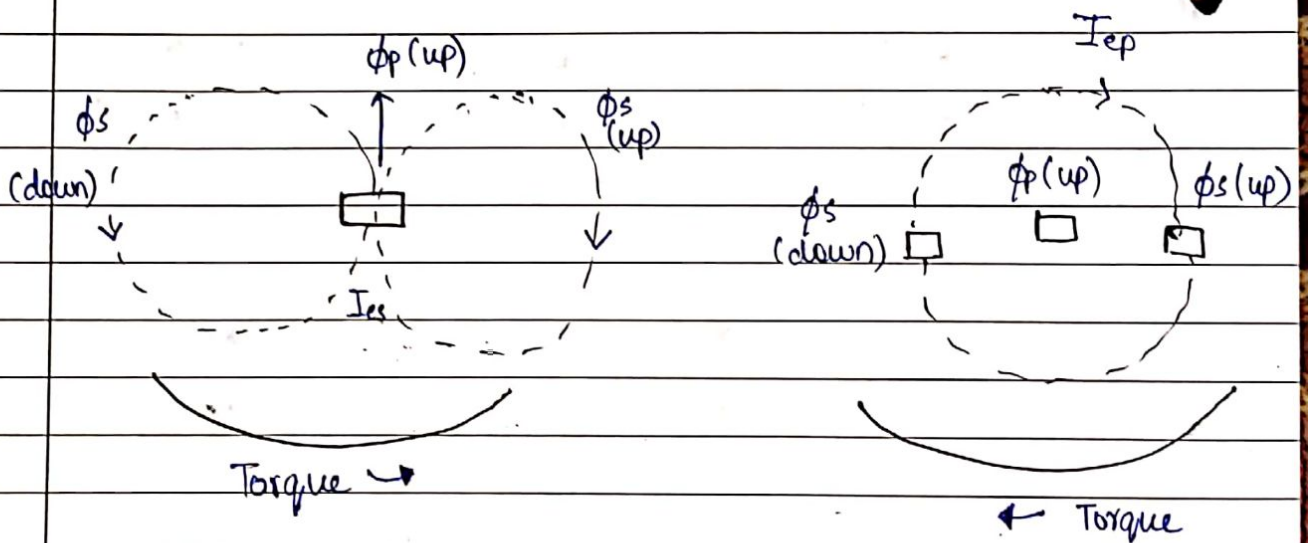 ϕp (up)
ϕs
(down)
ϕs
(up)
Ies
Torque →
Iep
ϕp (up)
ϕs (up)
ϕs
(down)
← Torque